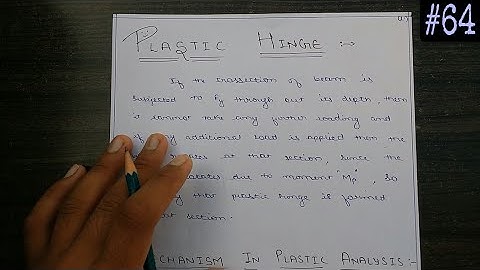 #64
PLASTIC HINGE :-
If the crossection of beam is
subjected to Fy through out its depth, then
it cannot take any further loading and
if any additional load is applied then the
rotates at that section, since the
rotates due to moment "Mp", so
that plastic hinge is formed
section.
MECHANISM IN PLASTIC ANALYSIS :-